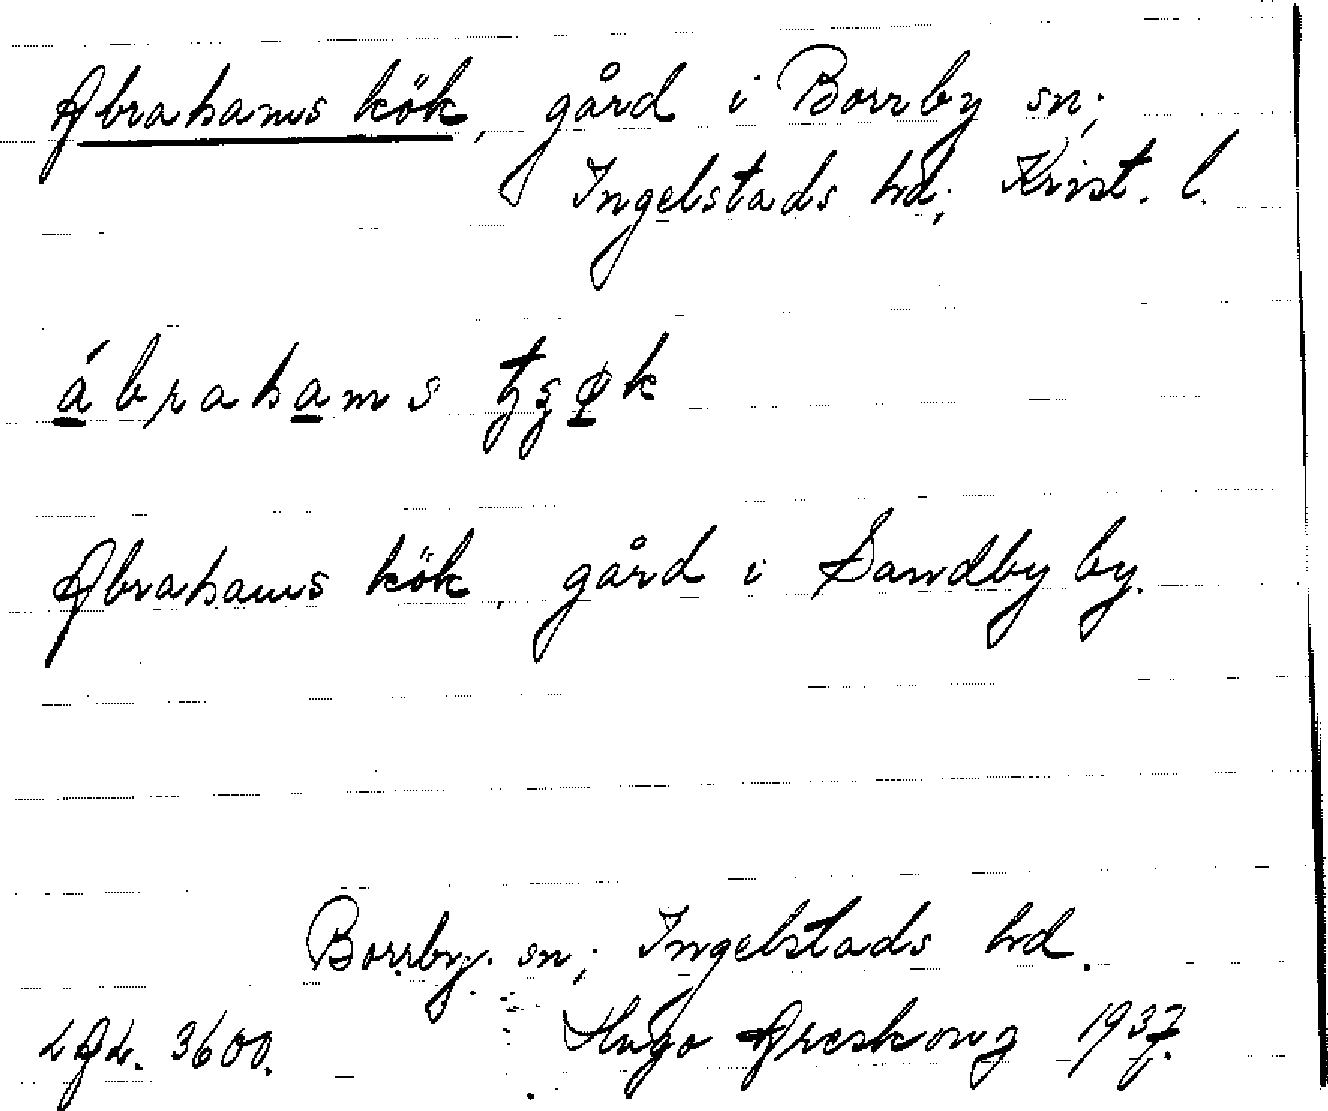 Abrahams kök, gård i Borrby sn;
Ingelstads hd; Krist. l.
ábrahams
Abrahams kök, gård i Sandby by.
Borrby sn; Ingelstads hd.
LAL. 3600. Hugo Areskoug 1937.